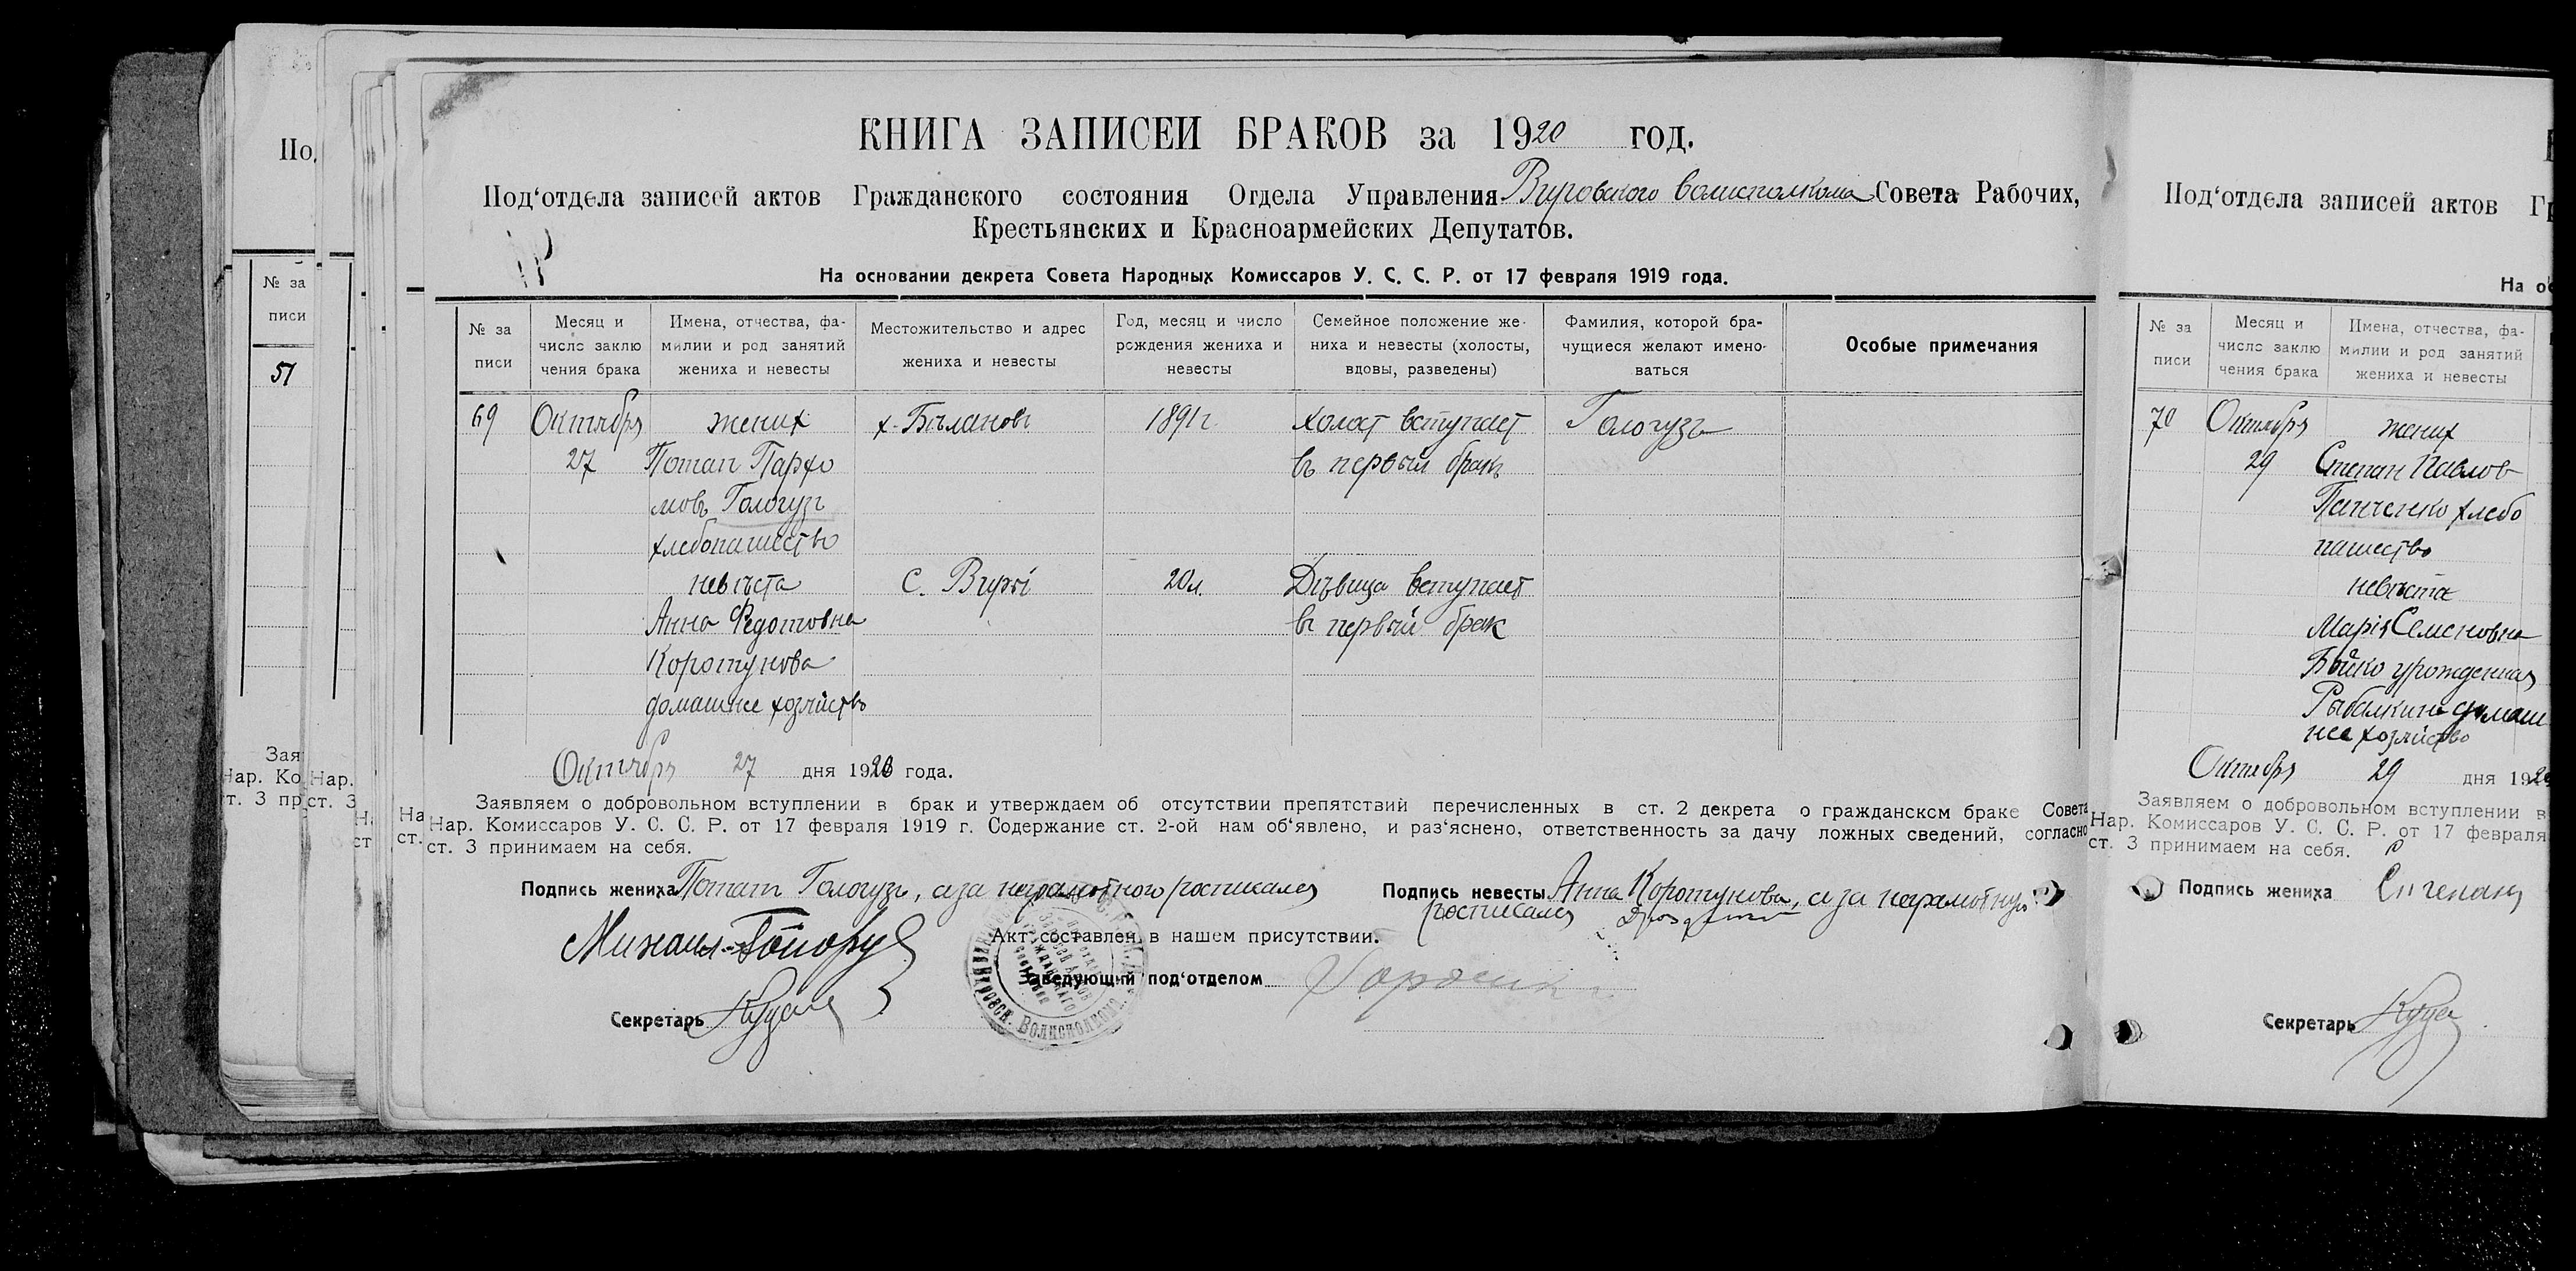 КНИГА ЗАПИСЕЙ БРАКОВ за 1920 год.
Под‘отдела записей актов Гражданского состояния Отдела Управления Вировского волисполкома Совета Рабочих,
Крестьянских и Красноармейских Депутатов.
На основании декрета Совета Народных Комиссаров У. С. С. Р. от 17 февраля 1919 года.
№ за
писи
Месяц и
число заклю
чения брака
Имена, отчества, фа-
милии и род занятий
жениха и невесты
Местожительство и адрес
жениха и невесты
Год, месяц и число
рождения жениха и
невесты
Семейное положение же-
ниха и невесты (холосты,
вдовы, разведены)
Фамилия, которой бра-
чущиеся желают имено-
ваться
Особые примечания
69 Октября жених х. Бѣлановъ 1891 г. холост вступает Гологузъ
27 Потап Парфо въ первый бракъ
мовъ Гологузъ
хлебопашество
невѣста С. Виры 20 л. Дѣвица вступает
Анна Федотовна в первый брак
Коротунова
домашнее хозяйство
Октября 27 дня 1920 года.
Заявляем о добровольном вступлении в брак и утверждаем об отсутствии препятствий перечисленных в ст. 2 декрета о гражданском браке Совета
Нар. Комиссаров У. С. С. Р. от 17 февраля 1919 г. Содержание ст. 2-ой нам об‘явлено, и раз‘яснено, ответственность за дачу ложных сведений, согласно
ст. 3 принимаем на себя.
Подпись жениха Потап Гологузъ, а за неграмотного росписался
Михаил
Подпись невесты Анна Коротунова, а за неграмотную
росписался
Акт составлен в нашем присутствии.
Заведующий под‘отделом
Секретарь
Волисполкома
По
№ за
писи
51
Зая
Нар. Ко
т. 3 пр
Нар.
ст. 3
На
ст.
Под‘отдела записей актов Гр
На ос
№ за
писи
Месяц и
число заклю
чения брака
Имена, отчества, фа-
милии и род занятий
жениха и невесты
70 Октября жених
29 Степан Павлов
Панченко хлебо
пашество
невѣста
Марія Семеновна
Бойко урожденная
Рыбалкина домаш
нее хозяйство
Октября 29 дня 1920
Заявляем о добровольном вступлении в
Нар. Комиссаров У. С. С. Р. от 17 февраля
ст. 3 принимаем на себя.
Подпись жениха
Секретарь